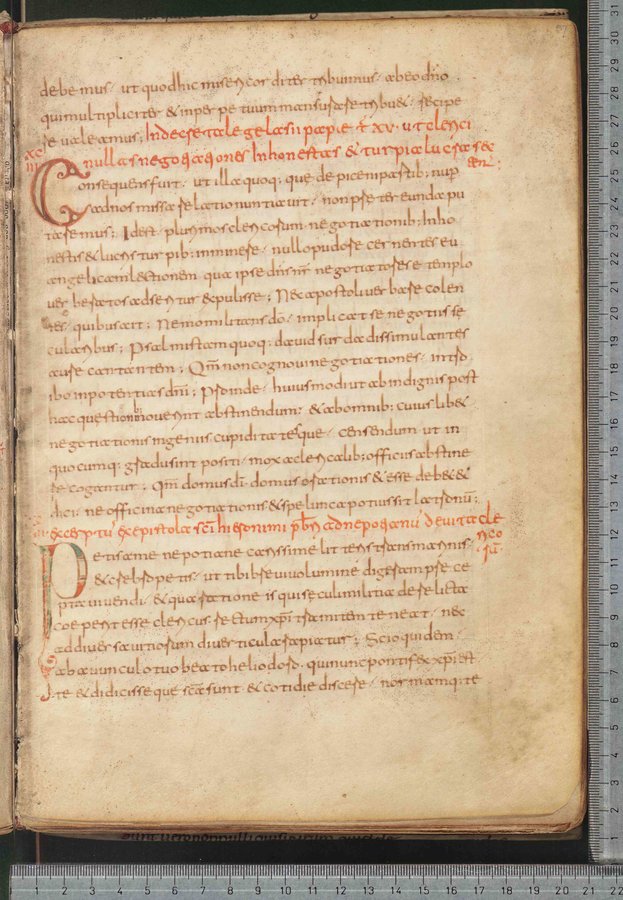 debemus, ut quod hic misericorditer tribuimus, ab eo dno
qui multipliciter & inperpetuum mansura retribu&, recipe
re ualeamus; In decretale gelasii papae tt xv. ut clerici
nullas negotiationes inhonestas & turpia lucra sec
tent.
Consequens fuit, ut illa quoq; que de picenis partib; nup
ad nos missa relatio nuntiauit, non preter eunda pu
taremus; Idest, plurimos clericorum negotiationib; inho
nestis & lucris turpib; imminere, nullo pudore cernentes eu
angelicam lectionem qua ipse dns negotiatores e templo
uerberatos adseritur expulisse; Nec apostoli uerba recolen
tes, quibus ait; Nemo militans do, implicat se negotiis se
cularibus; Psalmistam quoq; dauid surda dissimulantes
aure cantantem; Qm non cognoui negotiationes, introibo
ibo in potentias dni; Proinde, huiusmodi ut ab indignis post
hac questionib; nouerint abstinendum, & ab omnib; cuiuslib&
negotiationis ingeniis cupiditatesque, censendum ut in
quocumq; gradu sint positi, mox a clericalib; officiis abstine
re cogantur; Qm domus di domus orationis & esse deb& &
dici, ne officina negotiationis & spelunca potius sit latronu;
Exceptu ex epistola sci hieronimi prbri ad nepotianu de uita cle
rico
ru
Petis a me nepotiane carissime litteris transmarinis,
& crebro petis, ut tibi breui uolumine digeram prece
pta uiuendi, & qua ratione is qui seculi militia derelicta
coeperit esse clericus, rectum xpi tramitem teneat, nec
ad diuersa uitiorum diuerticula rapiatur; Scio quidem
ab auunculo tuo beato heliodoro, qui nunc pontifex xpi est
te & didicisse que sca sunt & cotidie discere, normamq; te